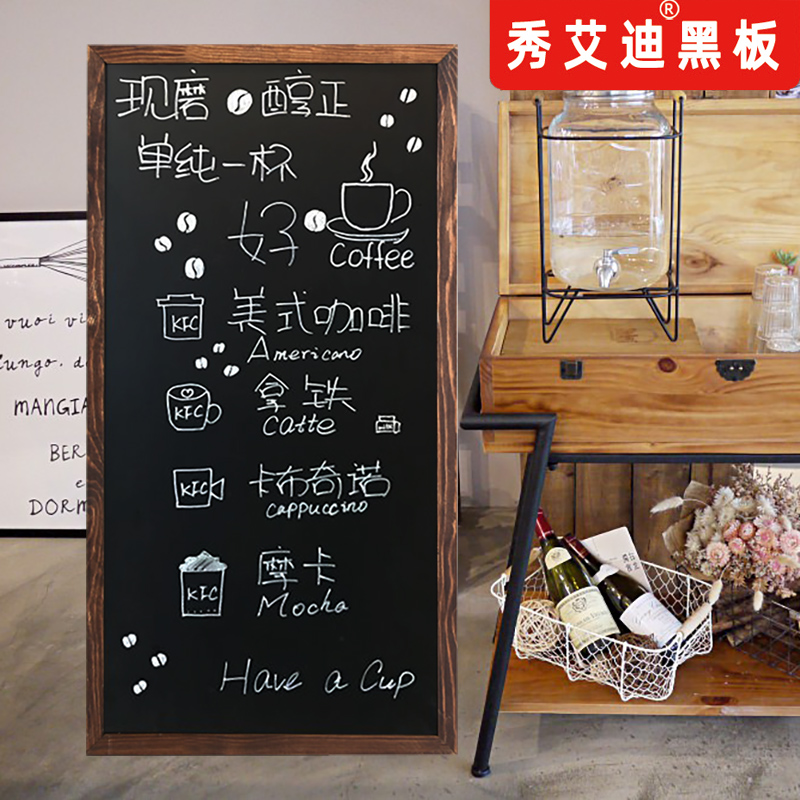 秀艾迪黑板®
现磨 醇正
单纯一杯
好
Coffee
KFC
美式咖啡
Americano
KFC
拿铁
Catte
KFC
卡布奇诺
cappuccino
KFC
摩卡
Mocha
Have a Cup
vuoi vi
lungo. d
MANGIA
BER
e
DORM